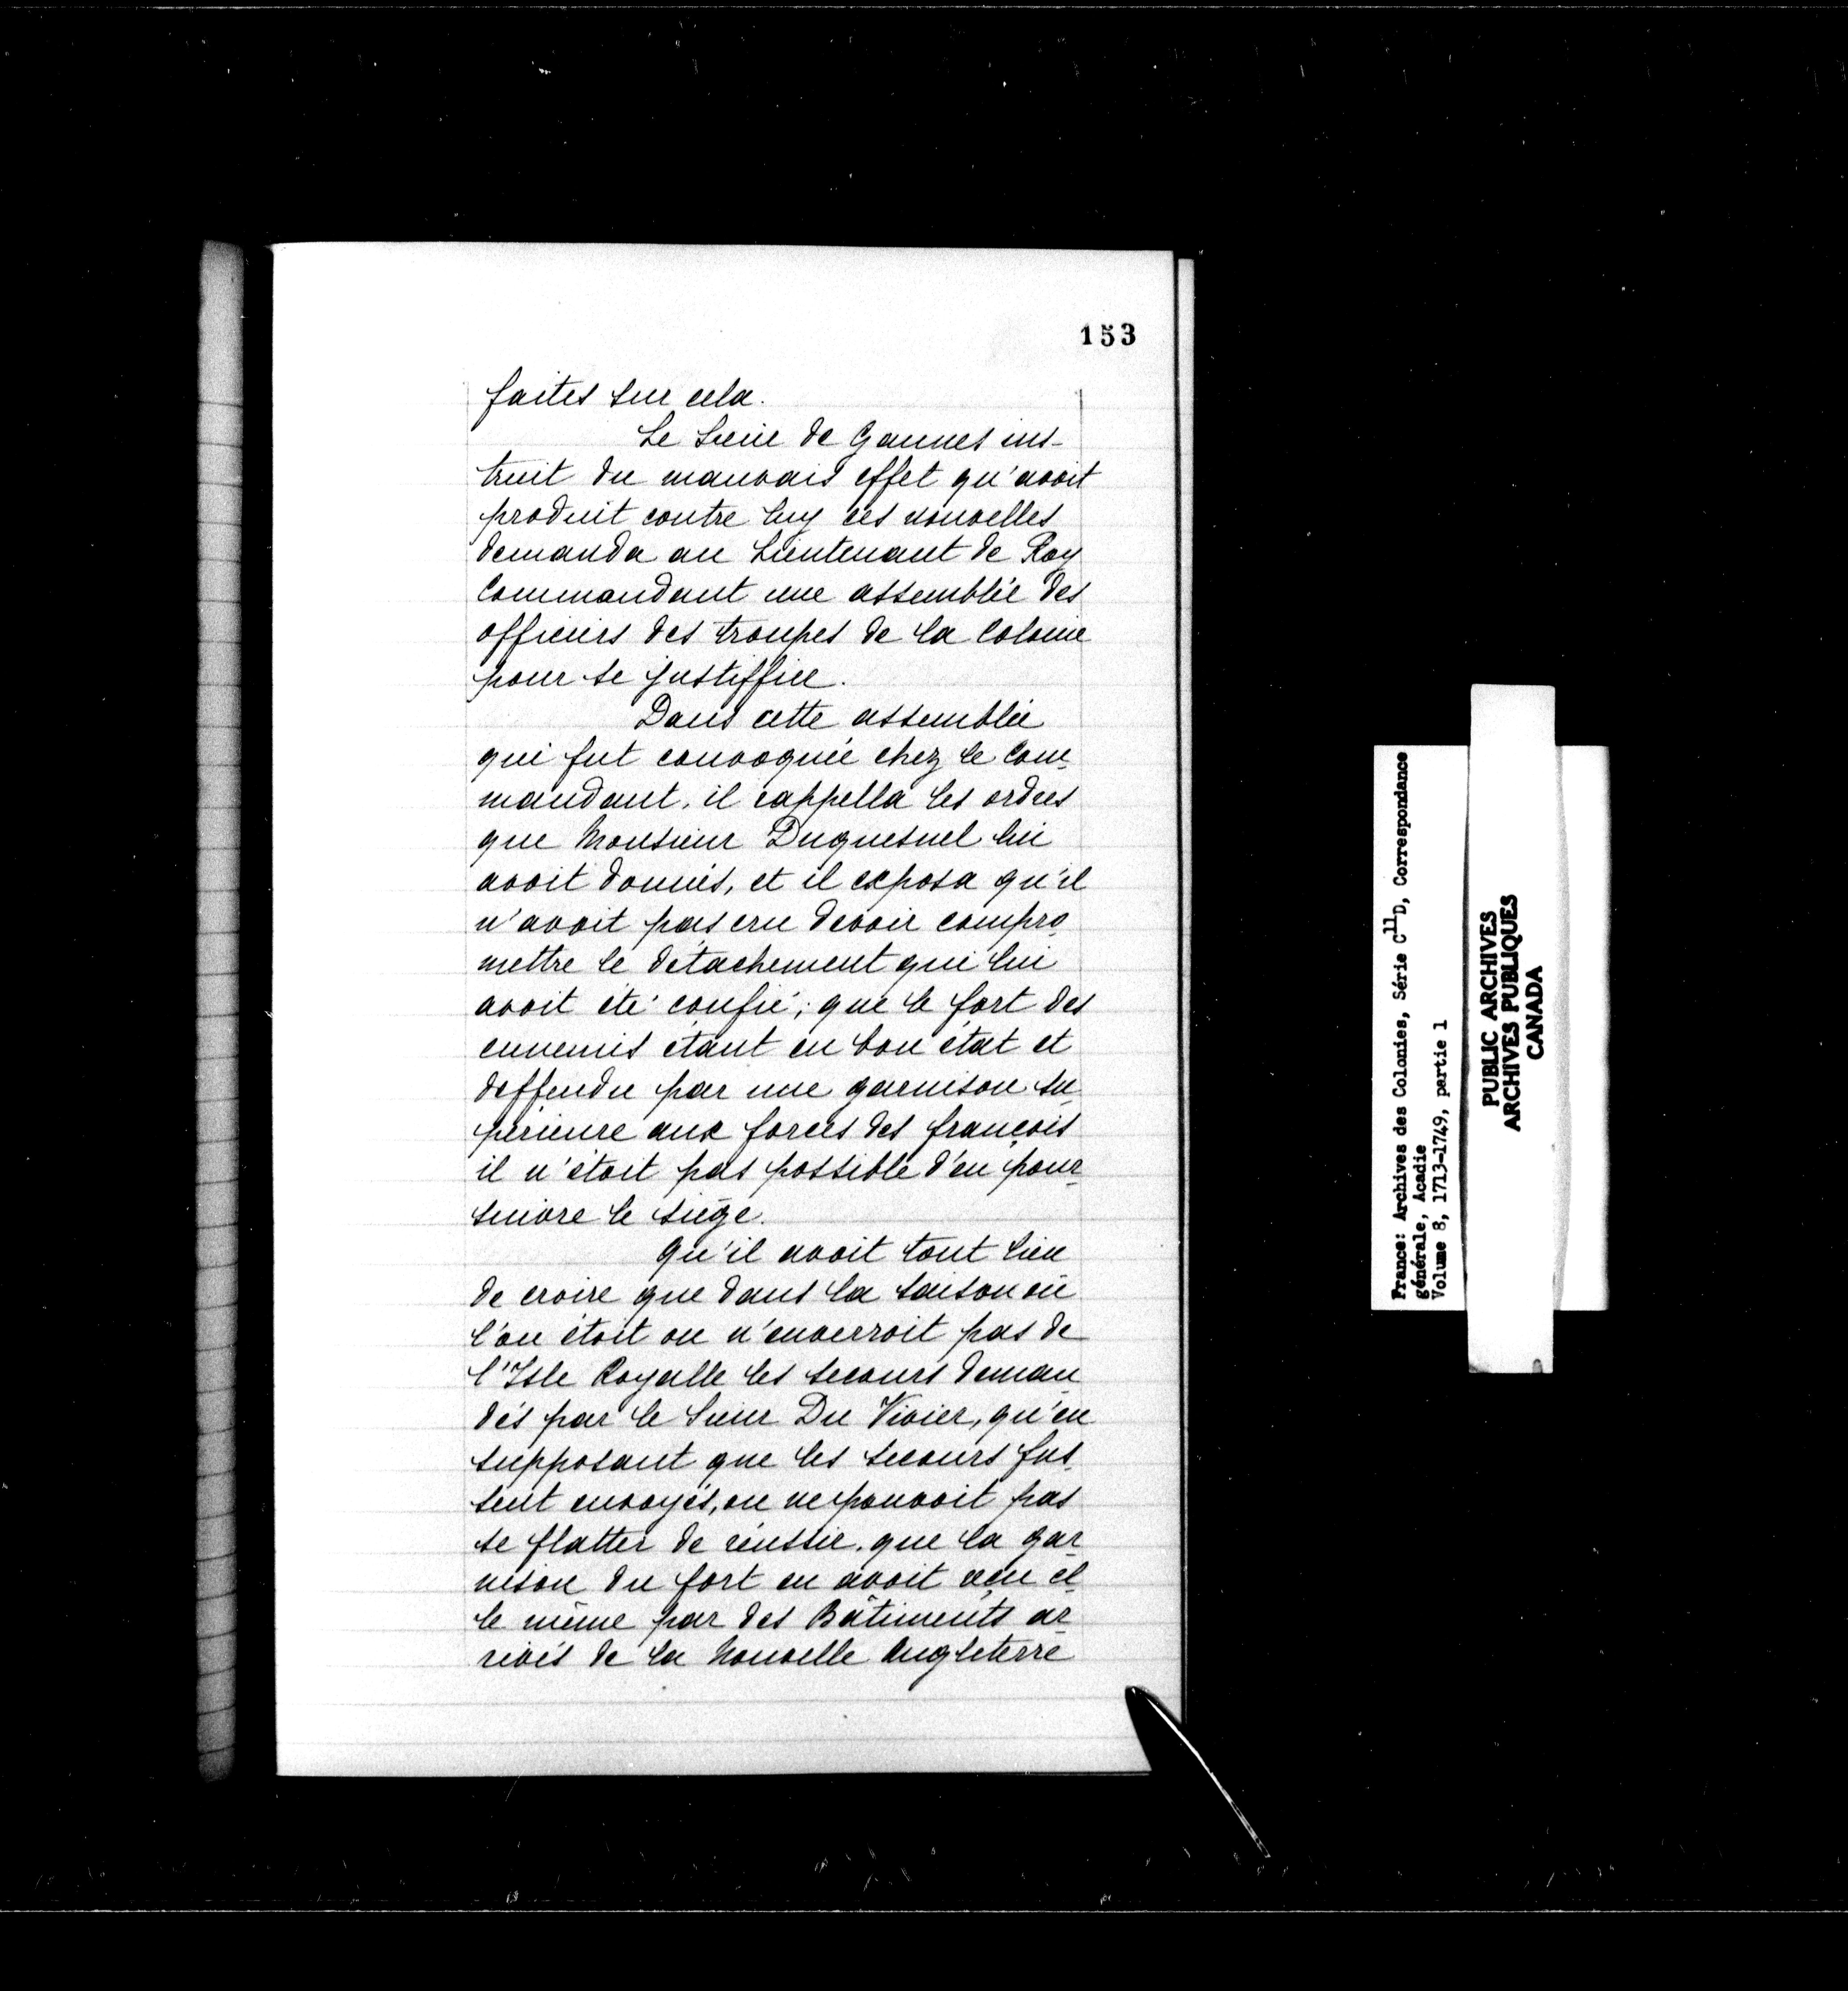 153
faites sur cela.
Le Sieur de Gannes ins-
truit du mauvais effet qu'avoit
produit contre luy ces nouvelles
demanda au Lieutenant de Roy
Commandant une assemblée des
officiers des troupes de la Colonie
pour se justiffier.
Dans cette assemblée
qui fut convoquée chez le Com-
mandant, il rappella les ordres
que Monsieur Duquesnel lui
avoit donnés, et il exposa qu'il
n'avoit pas cru devoir compro-
mettre le détachement qui lui
avoit été confié; que le fort des
ennemis étant en bon état et
deffendu par une garnison su-
périeure aux forces des françois
il n'étoit pas possible d'en pour-
suivre le siége.
Qu'il avoit tout lieu
de croire que dans la saison où
l'on étoit on n'enverroit pas de
l'Isle Royalle les secours deman-
dés par le Sieur Du Vivier, qu'en
supposant que les secours fus-
sent envoyés, on ne pouvoit pas
se flatter de réussir, que la gar-
nison du fort en avoit reçu el-
le même par des Bâtiments ar-
rivés de la Nouvelle Angleterre
France: Archives des Colonies, Série C11D, Correspondance
générale, Acadie
Volume 8, 1713-1749, partie 1
PUBLIC ARCHIVES
ARCHIVES PUBLIQUES
CANADA